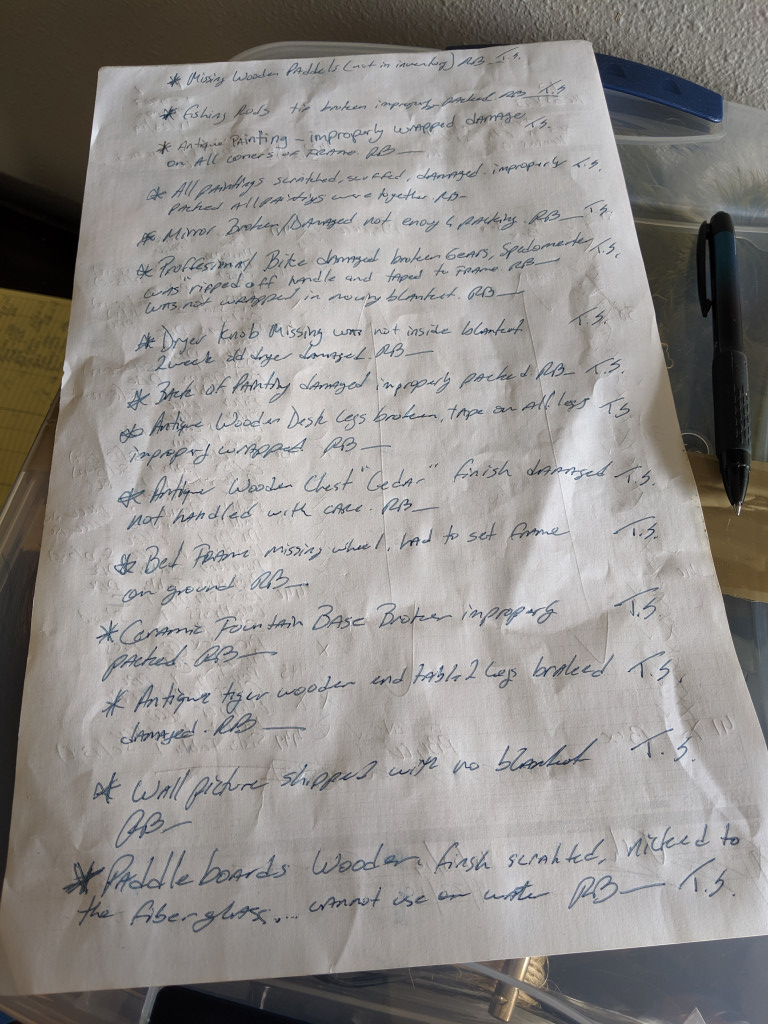 * Missing Wooden Paddels (not in inventory) RB T.S.
* Fishing Rods tip broken improperly packed RB T.S.
* Antique Painting - improperly wrapped damage T.S.
on All corners of FRAME. RB
* All paintings scratched, scuffed, damaged. improperly T.S.
packed All paintings were together RB
* Mirror Broken/Damaged not enough packing. RB T.S.
* Proffessional Bike damaged broken Gears, Spedometer T.S.
was "ripped off handle and taped to FRAME. RB
was not wrapped in moving blanket. RB
* Dryer Knob Missing was not inside blanket T.S.
2 week old dryer damaged. RB
* Back of Painting damaged improperly packed RB T.S.
* Antique Wooden Desk legs broken, tape on All legs T.S.
improperly wrapped RB
* Antique Wooden Chest "Cedar" finish damaged T.S.
not handled with care. RB
* Bed FRAME missing wheel, had to set frame T.S.
on ground RB
* Ceramic Fountain Base Broken improperly T.S.
packed. RB
* Antique tiger wooden end table 2 legs broked T.S.
damaged. RB
* Wall picture shipped with no blanket T.S.
RB
* Paddle boards Wooden, finsh scrahted, nicked to
the fiberglass.... cannot use on water RB T.S.